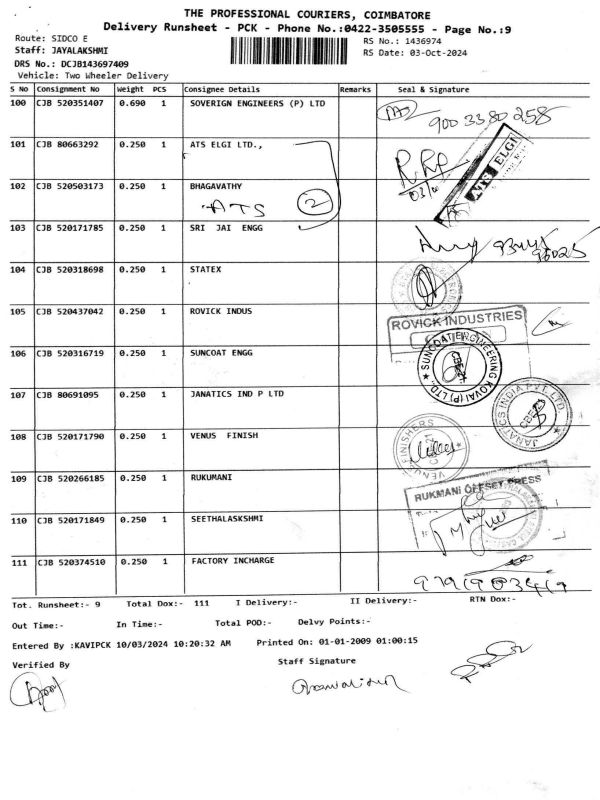 THE PROFESSIONAL COURIERS, COIMBATORE
Delivery Runsheet - PCK - Phone No.:0422-3505555 - Page No.:9
Route: SIDCO E
RS No.: 1436974
Staff: JAYALAKSHMI
RS Date: 03-Oct-2024
DRS No.: DCJB143697409
Vehicle: Two Wheeler Delivery
S No Consignment No Weight PCS Consignee Details Remarks Seal & Signature
100 CJB 520351407 0.690 1 SOVERIGN ENGINEERS (P) LTD
9003380258
101 CJB 80663292 0.250 1 ATS ELGI LTD.,
ATS ELGI
102 CJB 520503173 0.250 1 BHAGAVATHY
ATS 2
103 CJB 520171785 0.250 1 SRI JAI ENGG
104 CJB 520318698 0.250 1 STATEX
105 CJB 520437042 0.250 1 ROVICK INDUS
ROVICK INDUSTRIES
106 CJB 520316719 0.250 1 SUNCOAT ENGG
SUNCOAT ENGINEERING KOVAI (P) LTD.
107 CJB 80691095 0.250 1 JANATICS IND P LTD
JANATICS INDIA PVT LTD
108 CJB 520171790 0.250 1 VENUS FINISH
VENUS FINISHERS
109 CJB 520266185 0.250 1 RUKUMANI
RUKMANI OFFSET PRESS
110 CJB 520171849 0.250 1 SEETHALASKSHMI
111 CJB 520374510 0.250 1 FACTORY INCHARGE
Tot. Runsheet:- 9 Total Dox:- 111 I Delivery:- II Delivery:- RTN Dox:-
Out Time:- In Time:- Total POD:- Delvy Points:-
Entered By :KAVIPCK 10/03/2024 10:20:32 AM Printed On: 01-01-2009 01:00:15
Verified By Staff Signature